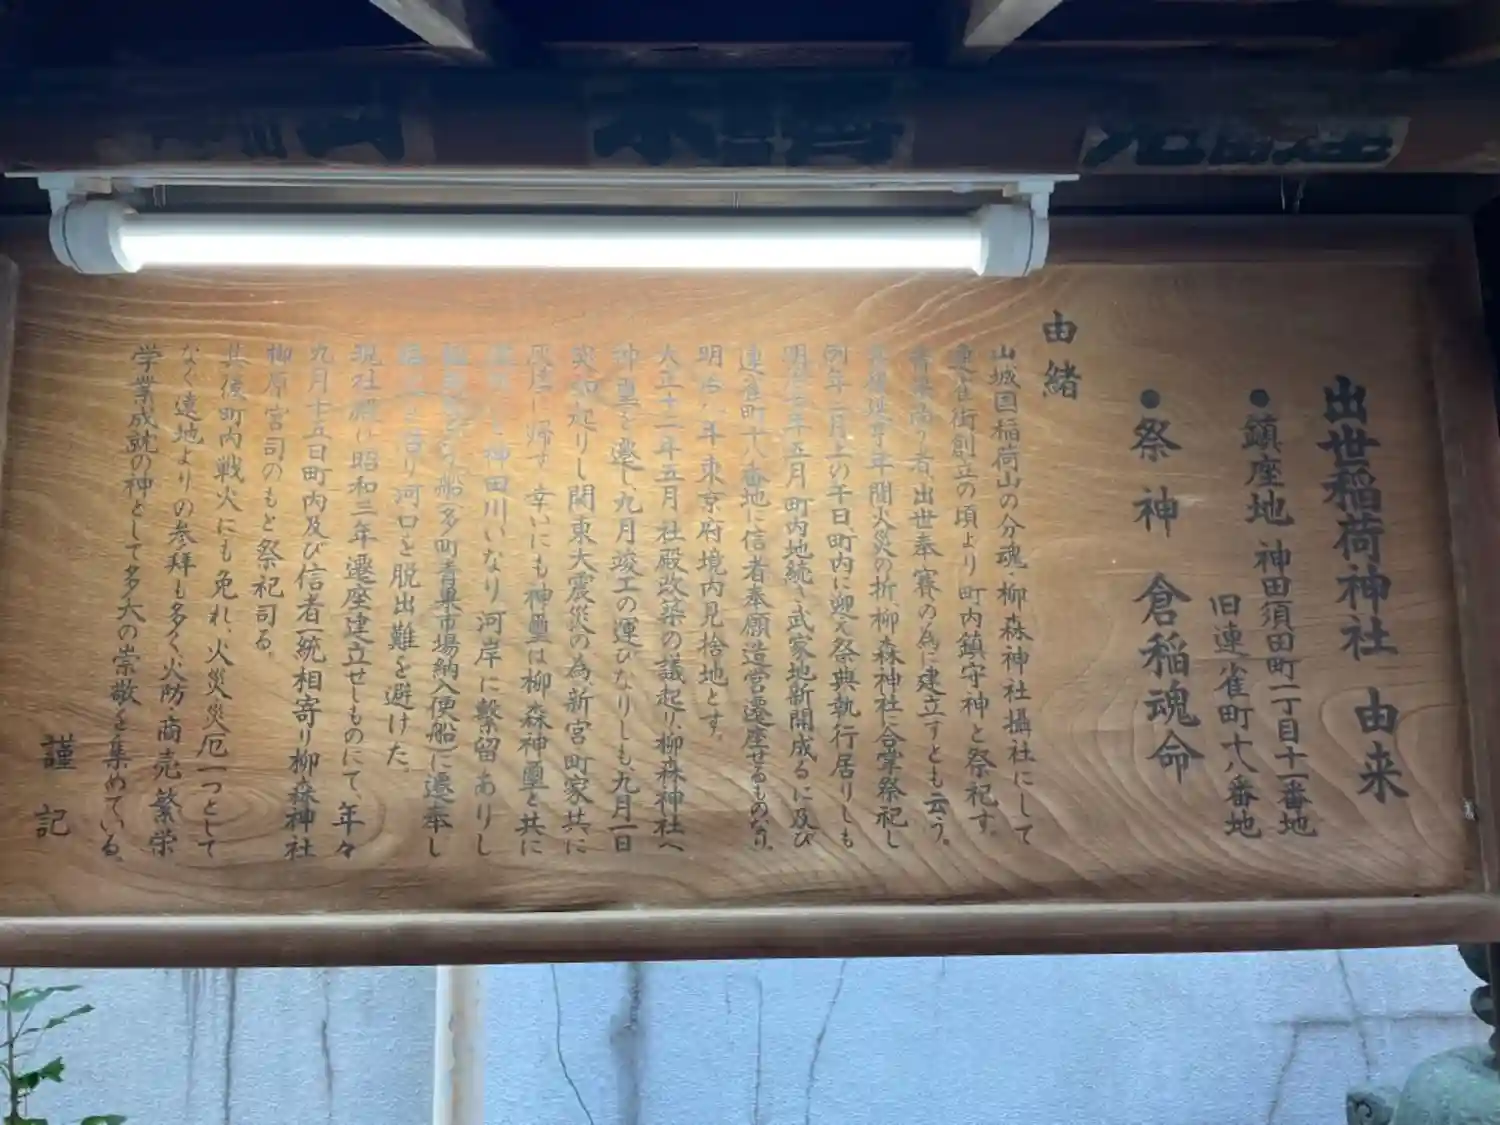 出世稲荷神社 由来
●鎮座地 神田須田町一丁目十一番地
旧連雀町十八番地
●祭神 倉稲魂命
由緒
山城国稲荷山の分魂、柳森神社攝社にして
連雀街創立の頃より町内鎮守神と祭祀す。
者、出世奉賽の為に建立すとも云う。
年間火災の折、柳森神社に合堂祭祀し
例年二月上の午日、町内に迎え祭典執行居りしも
明治 年五月町内地続き武家地新開成るに及び
連雀町十八番地に信者奉願造営遷座せるものなり。
明治八年東京府境内見捨地とす。
大正十二年五月社殿改築の議起り、柳森神社へ
神璽を遷し、九月竣工の運びなりしも、九月一日
突如起りし関東大震災の為新宮町家共に
灰燼に帰す、幸いにも神璽は柳森神璽と共に
神田川いなり河岸に繋留ありし
船(多町青果市場納入便船)に遷奉し
河口を脱出難を避けた。
現社殿は昭和三年遷座建立せしものにて、年々
九月十五日町内及び信者一統相寄り柳森神社
柳原宮司のもと祭祀司る。
其後町内戦火にも免れ、火災災厄一つとして
なく遠地よりの参拝も多く火防、商売繁栄
学業成就の神として多大の崇敬を集めている。
謹記